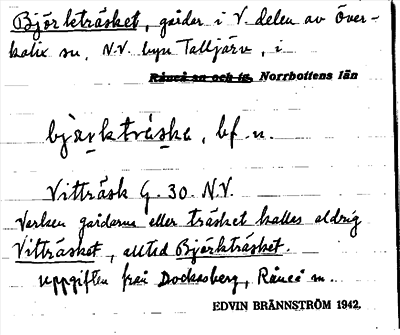 Björkträsket, gårdar i V. delen av Över-
kalix sn, N.V. byn Talljärv, i
Råneå sn och tg, Norrbottens län
bjärkträske, bf. n.
Vitträsk G. 30. N.V.
Varken gårdarna eller träsket kallas aldrig
Vitträsket, alltid Björkträsket.
uppgiften från Dockasberg, Råneå sn.
EDVIN BRÄNNSTRÖM 1942.